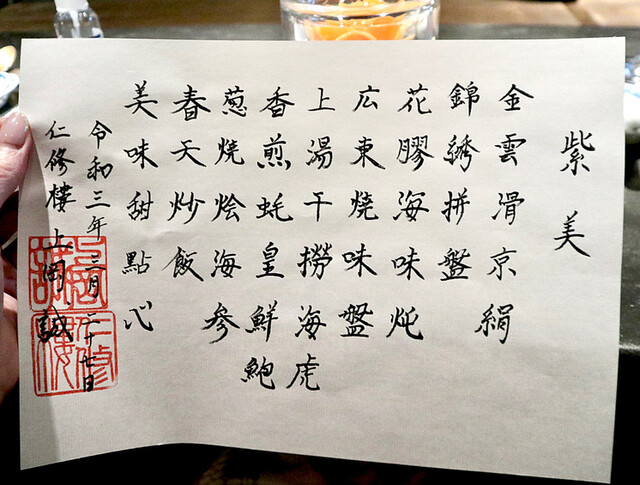 紫美
金雲滑京絹
錦綉拼盤
花膠海味炖
広東焼味盤
上湯干撈海虎
香煎蚝皇鮮鮑
葱焼燴海参
春天炒飯
美味甜點心
令和三年三月二十七日
仁修樓 上岡誠